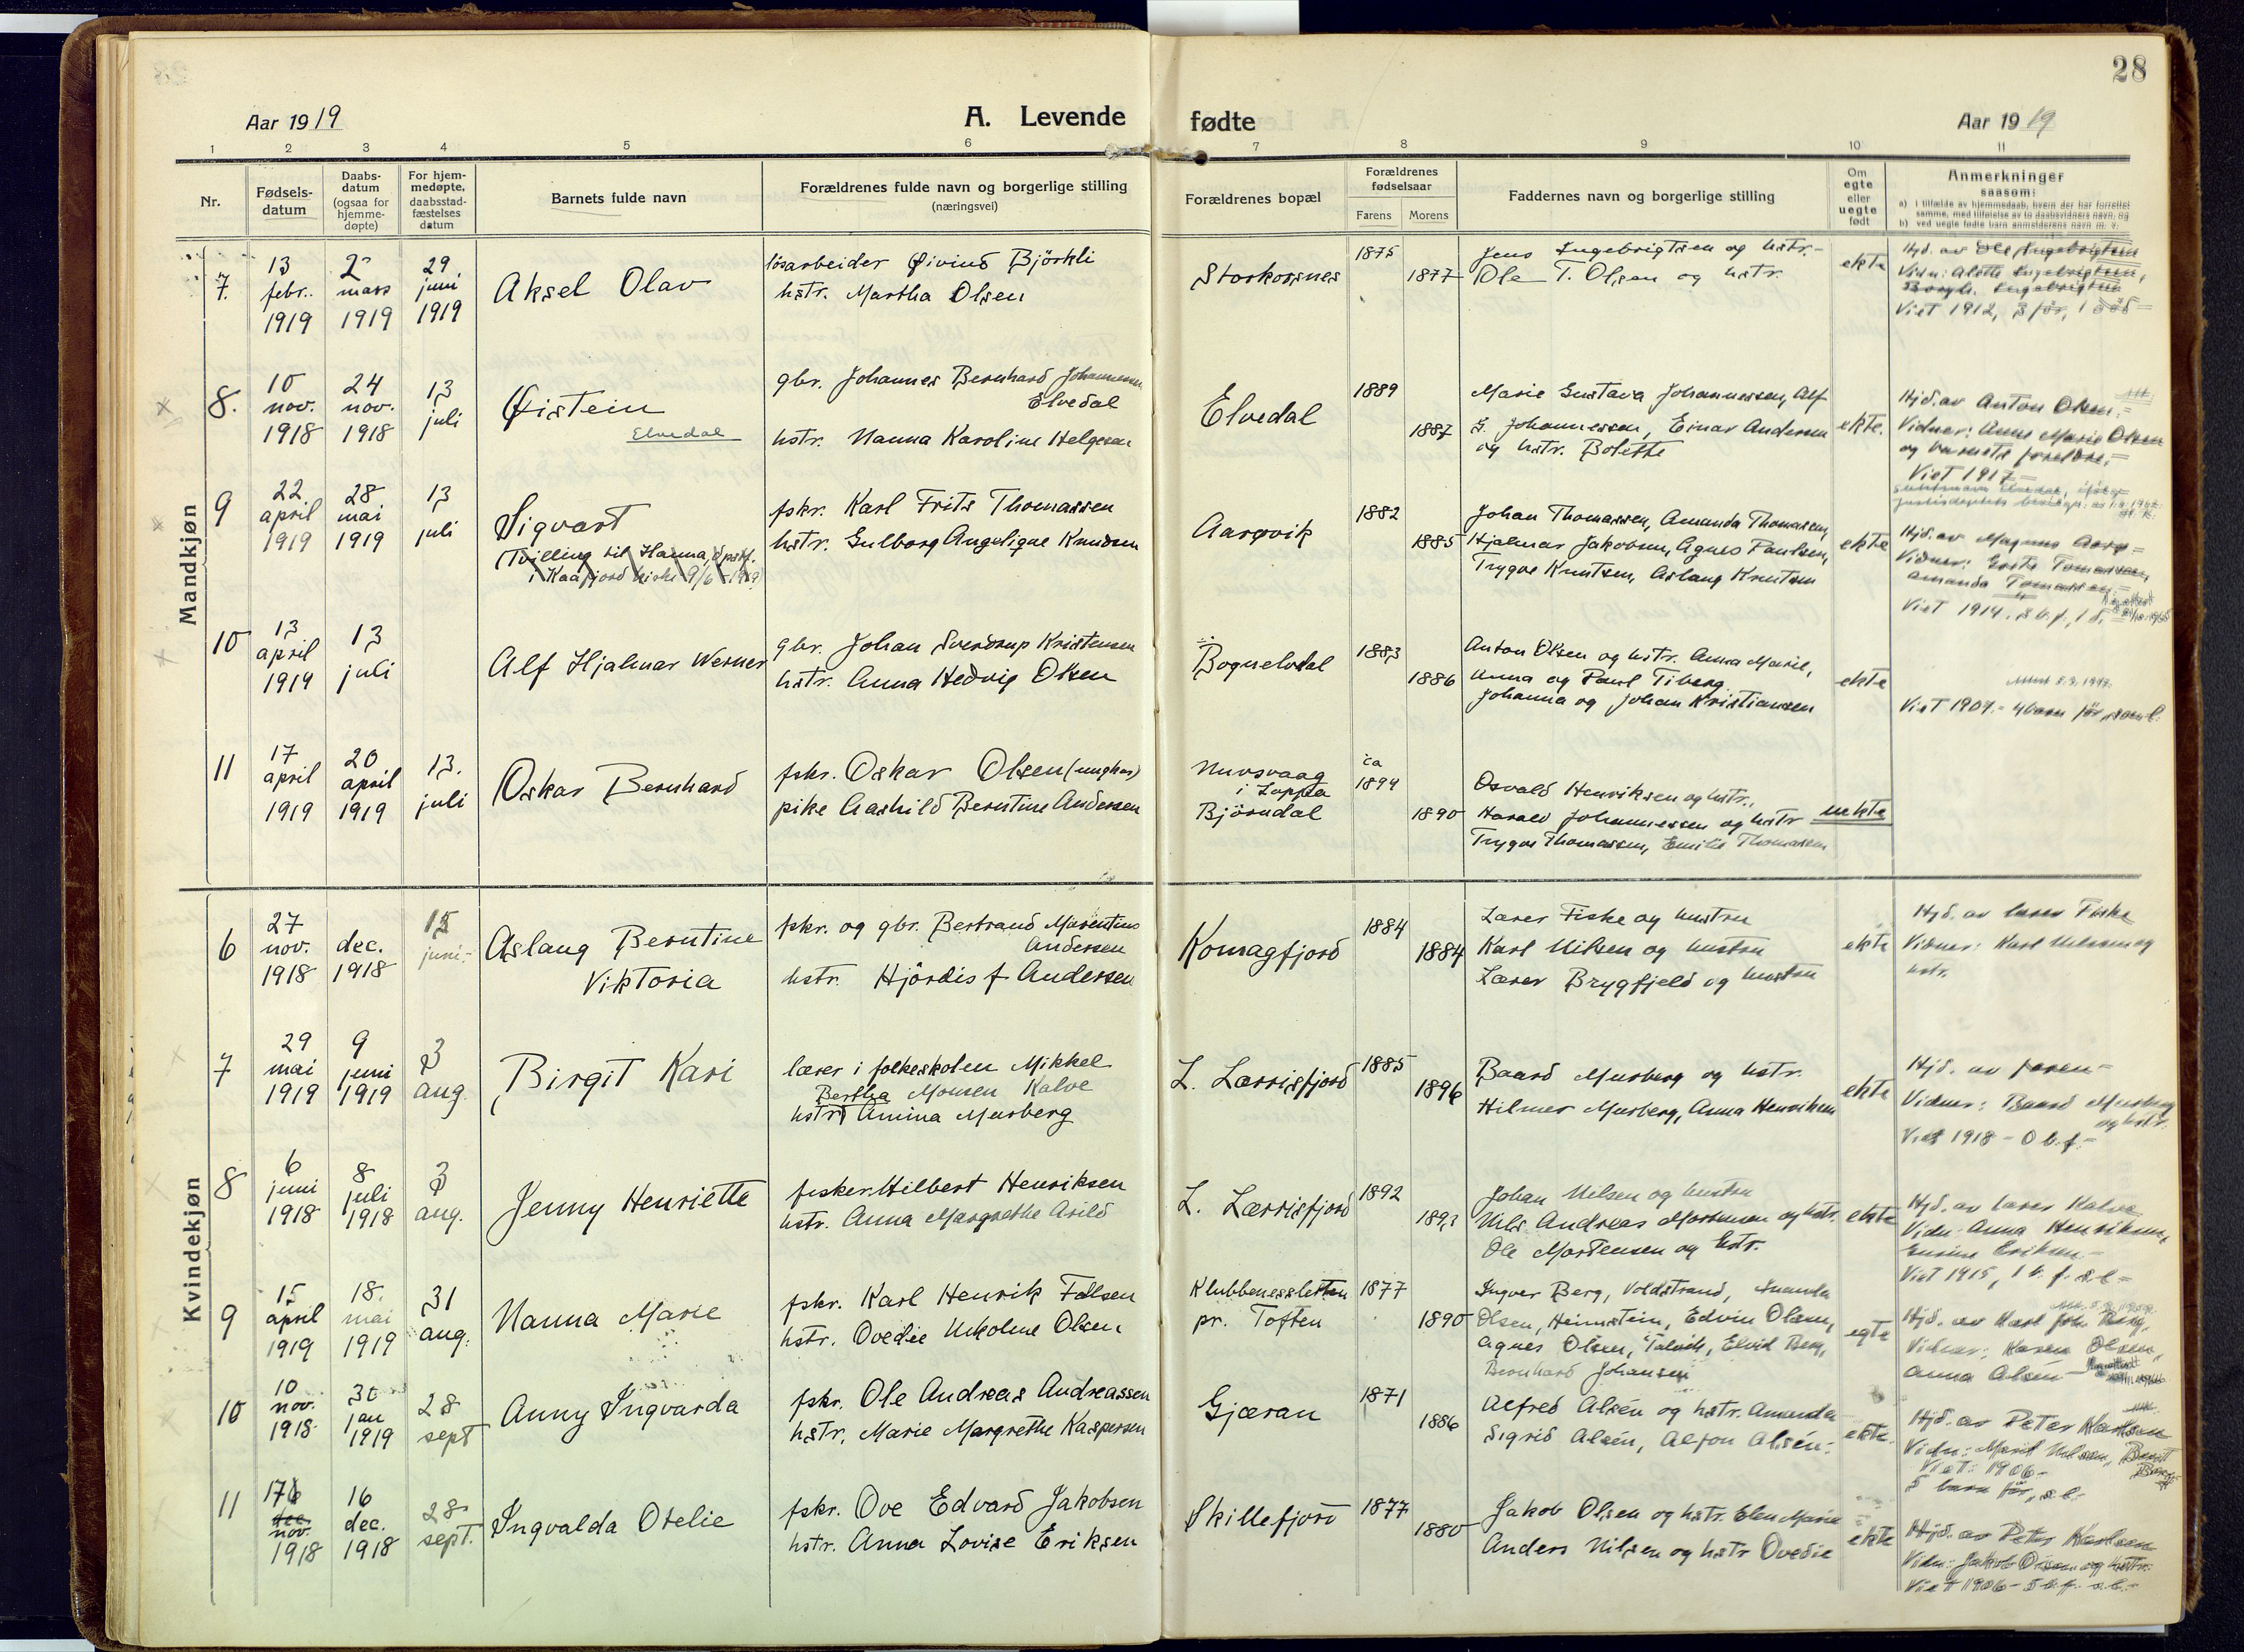 28
Aar 1919
A. Levende fødte
Aar 1919
1 2 3 4 5 6 7 8 9 10 11
Nr.
Fødsels-
datum
Daabs-
datum
(ogsaa for
hjemme-
døpte)
For hjem-
medøpte,
daabsstad-
fæstelses
datum
Barnets fulde navn
Forældrenes fulde navn og borgerlige stilling
(næringsvei)
Forældrenes bopæl
Forældrenes
fødselsaar
Farens Morens
Faddernes navn og borgerlige stilling
Om
egte
eller
uegte
født
Anmerkninger
saasom:
a) i tilfælde av hjemmedaab, hvem der har forrettet
samme, med tilføielse av to daabsvidners navn, og
b) ved uegte fødte barn anmelderens navn m. v.
Mandkjøn
7. 13 febr. 1919 2 mars 1919 29 juni 1919
Aksel Olav
løsarbeider Øivind Björkli
hstr. Martha Olsen
Storkorsnes 1875 1877
Jens Ingebrigtsen og hstr.
Ole T. Olsen og hstr.
ekte
Hjd. av Ole Ingebrigtsen
Vidn: Alette Ingebrigtsen,
Borgh. Ingebrigtsen
Viet 1912, 3 før, 1 död
8. 10 nov. 1918 24 nov. 1918 13 juli
Øistein
Elvedal
gbr. Johannes Bernhard Johannessen
Elvedal
hstr. Nanna Karoline Helgesen
Elvedal 1889 1887
Marie Gustava Johannessen, Alf
G. Johannessen, Einar Andersen
og hstr. Bolette
ekte.
Hjd. av Anton Olsen.
Vidner: Anne Marie Olsen
og barnets foreldre.
Viet 1917
9 22 april 1919 28 mai 1919 13 juli
Sigvart
(Tvilling til Hanna, opstf.
i Kaafjord kirke 9/6 - 1919)
fskr. Karl Frits Thomassen
hstr. Gulborg Angelique Knudsen
Aarøvik 1882 1885
Johan Thomassen, Amanda Thomassen,
Hjalmar Jakobsen, Agnes Paulsen,
Trygve Knutsen, Aslaug Knutsen
ekte
Hjd. av Magnus Aarø
Vidner: Tomassen,
Amanda Tomassen
Viet 1914. 3 b. f., 1 d.
10 13 april 1919 13 juli
Alf Hjalmar Werner
gbr. Johan Sverdrup Kristensen
hstr. Anna Hedvig Olsen
Bognelvdal 1883 1886
Anton Olsen og hstr. Anna Marie,
Anna og Paul Tiberg
Johanna og Johan Kristiansen
ekte
Viet 1907.- 4 barn før, saml.
11 17 april 1919 20 april 1919 13. juli
Oskar Bernhard
fskr. Oskar Olsen (ungkar)
pike Aashild Berntine Andersen
Nuvsvaag
i Loppa
Björndal
ca 1894 1890
Osvald Henriksen og hstr.,
Harald Johannessen og hstr
Trygve Thomassen, Emilie Thomassen
uekte
Kvindekjøn
6 27 nov. 1918 dec. 1918 15 juni
Aslaug Berntine
Viktoria
fskr. og gbr. Bertrand Marentius
Andersen
hstr. Hjördis f Andersen
Komagfjord 1884 1884
Lærer Fiske og hustru
Karl Nilsen og hustru
Lærer Brygfjeld og hustru
ekte
Hjd. av lærer Fiske
Vidner: Karl Nilsen og
hstr.
7 29 mai 1919 9 juni 1919 3 aug.
Birgit Kari
lærer i folkeskolen Mikkel
Bertha Monsen Kalve
hstr. Amina Mursberg
L. Lerrisfjord 1885 1896
Baard Mursberg og hstr.
Hilmer Mursberg, Anna Henriksen
ekte
Hjd. av faren
Vidner: Baard Mursberg
og hstr.
Viet 1918 - 0 b. f.
8 6 juni 1918 8 juli 1918 3 aug.
Jenny Henriette
fisker Hilbert Henriksen
hstr. Anna Margrethe Arild
L. Lerrisfjord 1892 1893
Johan Nilsen og hustru
Nils Andreas Mortensen og hstr.
Ole Mortensen og hstr.
ekte
Hjd. av lærer Kalve
Vidn: Anna Henriksen,
Eriksen
Viet 1915, 1 b. f. s. l.
9 15 april 1919 18. mai 1919 31 aug.
Nanna Marie
fskr. Karl Henrik Falsen
hstr. Ovedie Nikoline Olsen
Klubbenessletten
pr. Toften
1877 1890
Ingvar Berg, Voldstrand, Amanda
Olsen, Heimstein, Edvin Olsen,
Agnes Olsen, Talvik, Elvid Berg,
Bernhard Johansen
egte
Hjd. av Karl Joh. Berg,
Vidner: Karen Olsen,
Anna Alsén
10 10 nov. 1918 30 jan 1919 28 sept
Anny Ingvarda
fskr. Ole Andreas Andreassen
hstr. Marie Margrethe Kaspersen
Gjæran 1871 1886
Alfred Alsén og hstr. Amanda
Sigrid Alsén, Alfon Alsén
ekte.
Hjd. av Peter Karlsen
Vidn: Marit Nilsen, Berit
Viet: 1906
5 barn før, s. l.
11 17 nov. 1918 16 dec. 1918 28 sept.
Ingvalda Otelie
fskr. Ove Edvard Jakobsen
hstr. Anna Lovise Eriksen
Skillefjord 1877 1880
Jakob Olsen og hstr. Elen Marie
Anders Nilsen og hstr Ovedie
ekte
Hjd. av Peter Karlsen
Vidn: Jakob Olsen og hstr.
Viet 1906 - 5 b. f. s. l.